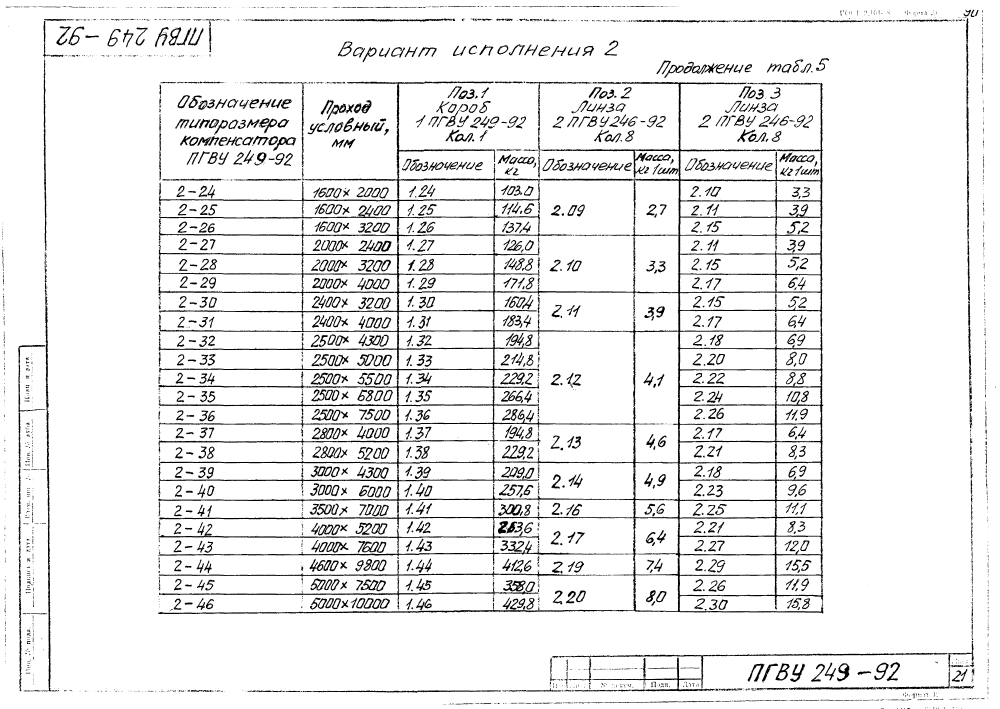 90
ПГВУ 249-92
Вариант исполнения 2
Продолжение табл. 5
Обозначение типоразмера компенсатора ПГВУ 249-92 | Проход условный, мм | Поз. 1 Короб 1 ПГВУ 249-92 Кол. 1 | Поз. 2 Линза 2 ПГВУ 246-92 Кол. 8 | Поз. 3 Линза 2 ПГВУ 246-92 Кол. 8
Обозначение | Масса, кг | Обозначение | Масса, кг 1 шт | Обозначение | Масса, кг 1 шт
2-24 | 1600×2000 | 1.24 | 103.0 | 2.09 | 2,7 | 2.10 | 3,3
2-25 | 1600×2400 | 1.25 | 114,6 | 2.11 | 3,9
2-26 | 1600×3200 | 1.26 | 137,4 | 2.15 | 5,2
2-27 | 2000×2400 | 1.27 | 126,0 | 2.10 | 3,3 | 2.11 | 3,9
2-28 | 2000×3200 | 1.28 | 148,8 | 2.15 | 5,2
2-29 | 2000×4000 | 1.29 | 171,8 | 2.17 | 6,4
2-30 | 2400×3200 | 1.30 | 160,4 | 2.11 | 3,9 | 2.15 | 5,2
2-31 | 2400×4000 | 1.31 | 183,4 | 2.17 | 6,4
2-32 | 2500×4300 | 1.32 | 194,8 | 2.12 | 4,1 | 2.18 | 6,9
2-33 | 2500×5000 | 1.33 | 214,8 | 2.20 | 8,0
2-34 | 2500×5500 | 1.34 | 229,2 | 2.22 | 8,8
2-35 | 2500×6800 | 1.35 | 266,4 | 2.24 | 10,8
2-36 | 2500×7500 | 1.36 | 286,4 | 2.26 | 11,9
2-37 | 2800×4000 | 1.37 | 194,8 | 2.13 | 4,6 | 2.17 | 6,4
2-38 | 2800×5200 | 1.38 | 229,2 | 2.21 | 8,3
2-39 | 3000×4300 | 1.39 | 209,0 | 2.14 | 4,9 | 2.18 | 6,9
2-40 | 3000×6000 | 1.40 | 257,6 | 2.23 | 9,6
2-41 | 3500×7000 | 1.41 | 300,8 | 2.16 | 5,6 | 2.25 | 11,1
2-42 | 4000×5200 | 1.42 | 263,6 | 2.17 | 6,4 | 2.21 | 8,3
2-43 | 4000×7600 | 1.43 | 332,4 | 2.27 | 12,0
2-44 | 4600×9800 | 1.44 | 412,6 | 2.19 | 7,4 | 2.29 | 15,5
2-45 | 5000×7500 | 1.45 | 358,0 | 2.20 | 8,0 | 2.26 | 11,9
2-46 | 5000×10000 | 1.46 | 429,8 | 2.30 | 15,8
ПГВУ 249-92
21
№ докум. Подп. Дата